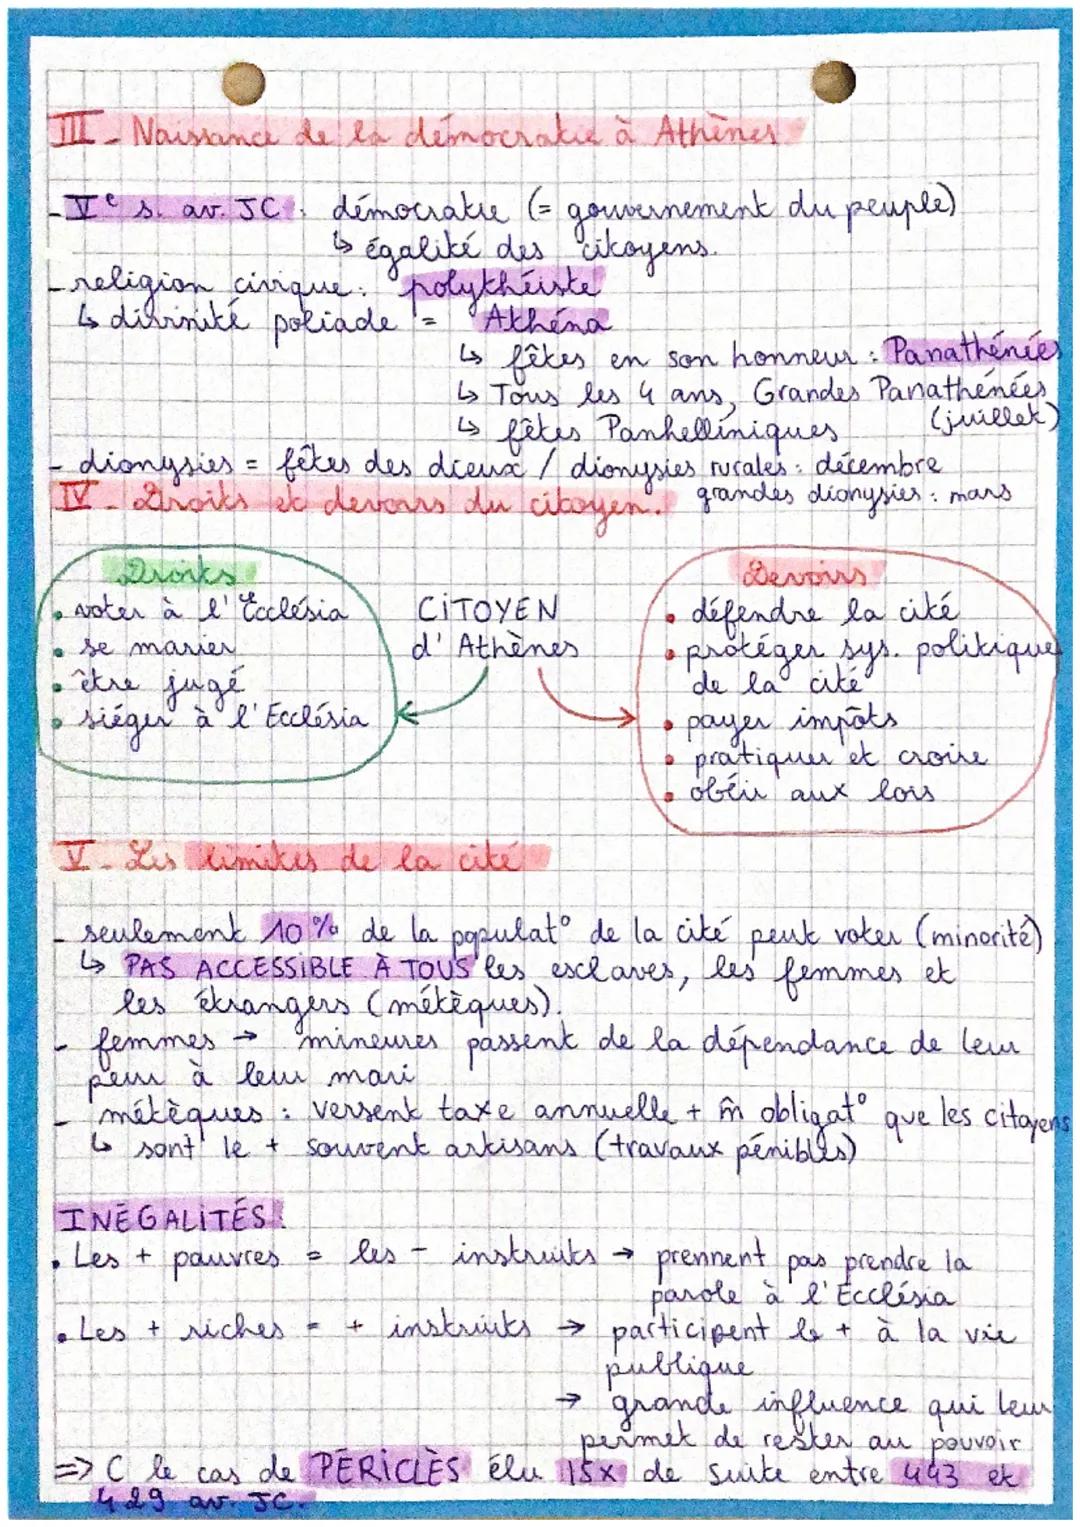 III - Naissance de la démocratie à Athènes
- Ve s. av. JC : démocratie (= gouvernement du peuple)
↳ égalité des citoyens.
- religion civique : polythéiste
↳ divinité poliade = Athéna
↳ fêtes en son honneur : Panathénées
↳ Tous les 4 ans, Grandes Panathénées
(juillet)
↳ fêtes Panhelléniques
- dionysies = fêtes des dieux / dionysies rurales : décembre
grandes dionysies : mars
IV - Droits et devoirs du citoyen.
Droits
• voter à l'Ecclésia
• se marier
• être jugé
• siéger à l'Ecclésia
CITOYEN
d'Athènes
Devoirs
• défendre la cité
• protéger sys. politique
de la cité
• payer impôts
• pratiquer et croire
• obéir aux lois
V - Les limites de la cité
- seulement 10% de la populat° de la cité peut voter (minorité)
↳ PAS ACCESSIBLE À TOUS les esclaves, les femmes et
les étrangers (métèques).
- femmes → mineures passent de la dépendance de leur
peur à leur mari
- métèques : versent taxe annuelle + m̂ obligat° que les citoyens
↳ sont le + souvent artisans (travaux pénibles)
INÉGALITÉS :
• Les + pauvres = les - instruits → prennent pas prendre la
parole à l'Ecclésia
• Les + riches = + instruits → participent le + à la vie
publique
→ grande influence qui leur
permet de rester au pouvoir
=> C le cas de PÉRICLÈS élu 15x de suite entre 443 et
429 av. JC.